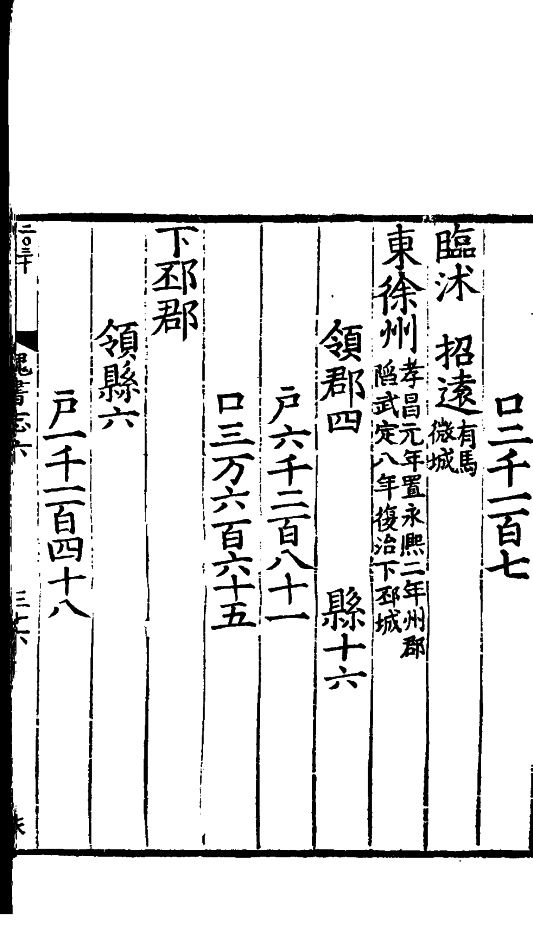 口二千一百七
臨沭　招遠有馬微城
東徐州孝昌元年置永熙二年州郡陷武定八年復治下邳城
領郡四　縣十六
户六千二百八十一
口三万六百六十五
下邳郡
領縣六
户一千一百四十八
魏書志六